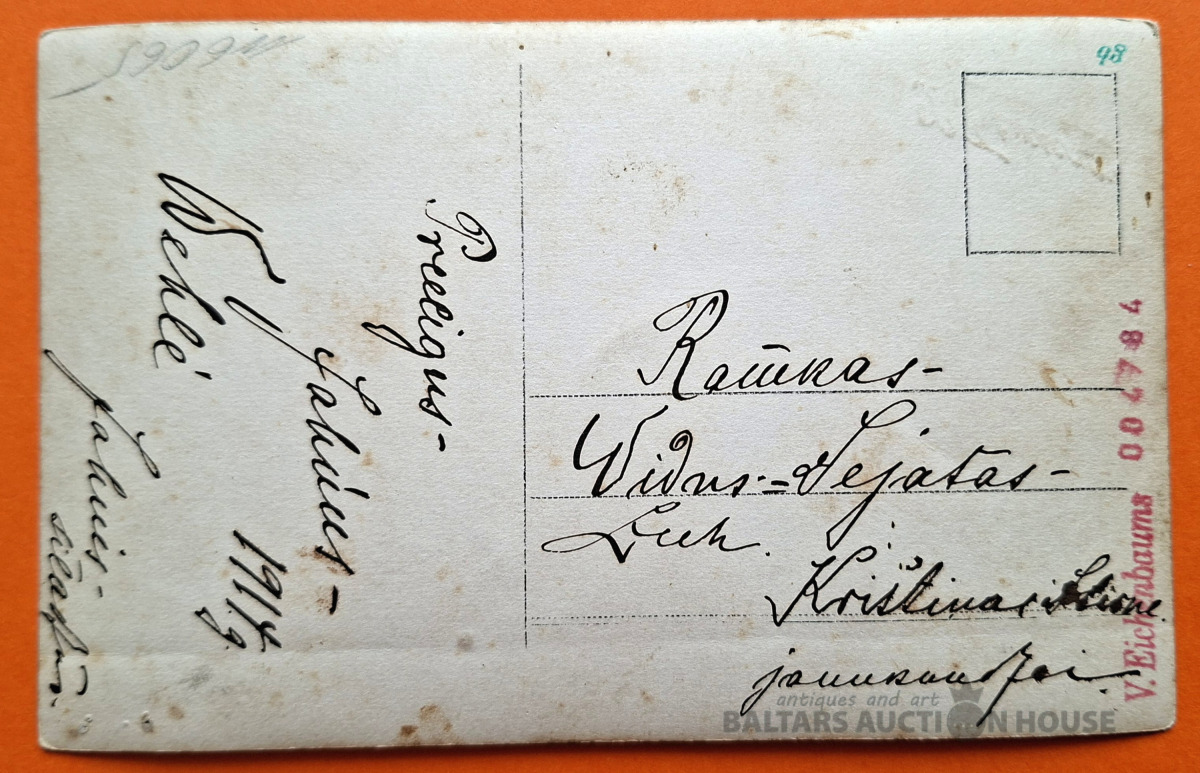 Preeigus-
Jahnus-
Wehlé
1914 g.
Jahnis-
Ramkas-
Widus=Sejatas-
Leeh.
Kristinai
jaunkundzei
98
V. Eichenbaums 004784
antiques and art
BALTARS AUCTION HOUSE